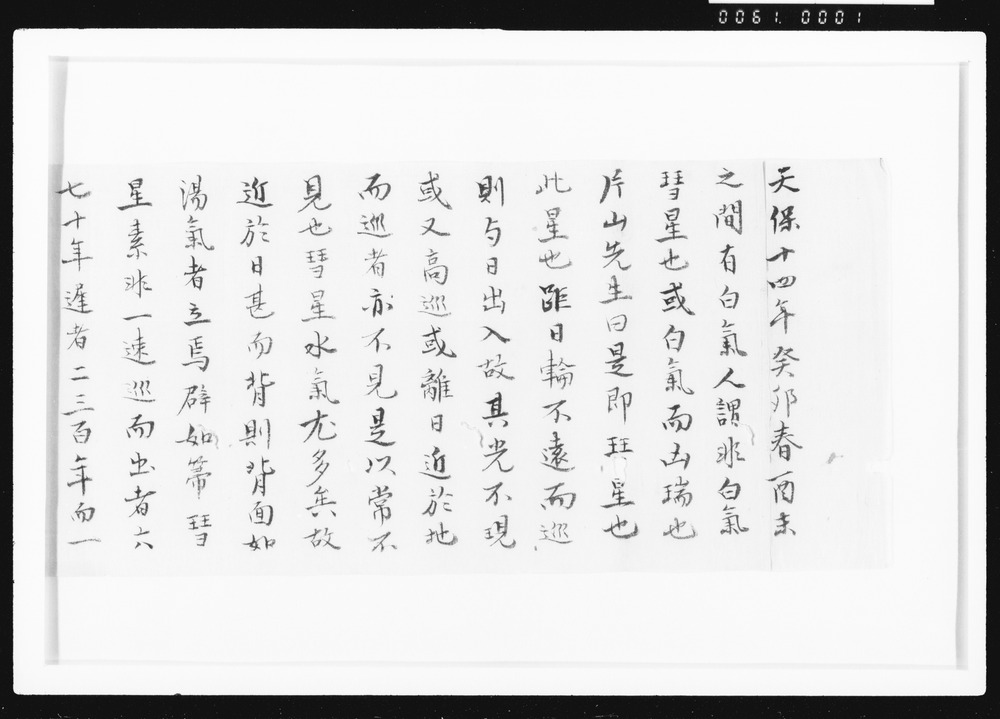 0061.0001
天保十四年癸卯春酉末
之間有白氣人謂非白氣
彗星也或白氣而凶瑞也
片山先生曰是即彗星也
此星也距日輪不遠而巡
則与日出入故其光不現
或又高巡或離日近於地
而巡者亦不見是以常不
見也彗星水氣尤多矣故
近於日甚而背則背面如
湯氣者立焉辟如箒彗
星素非一速巡而出者六
七十年遲者二三百年而一